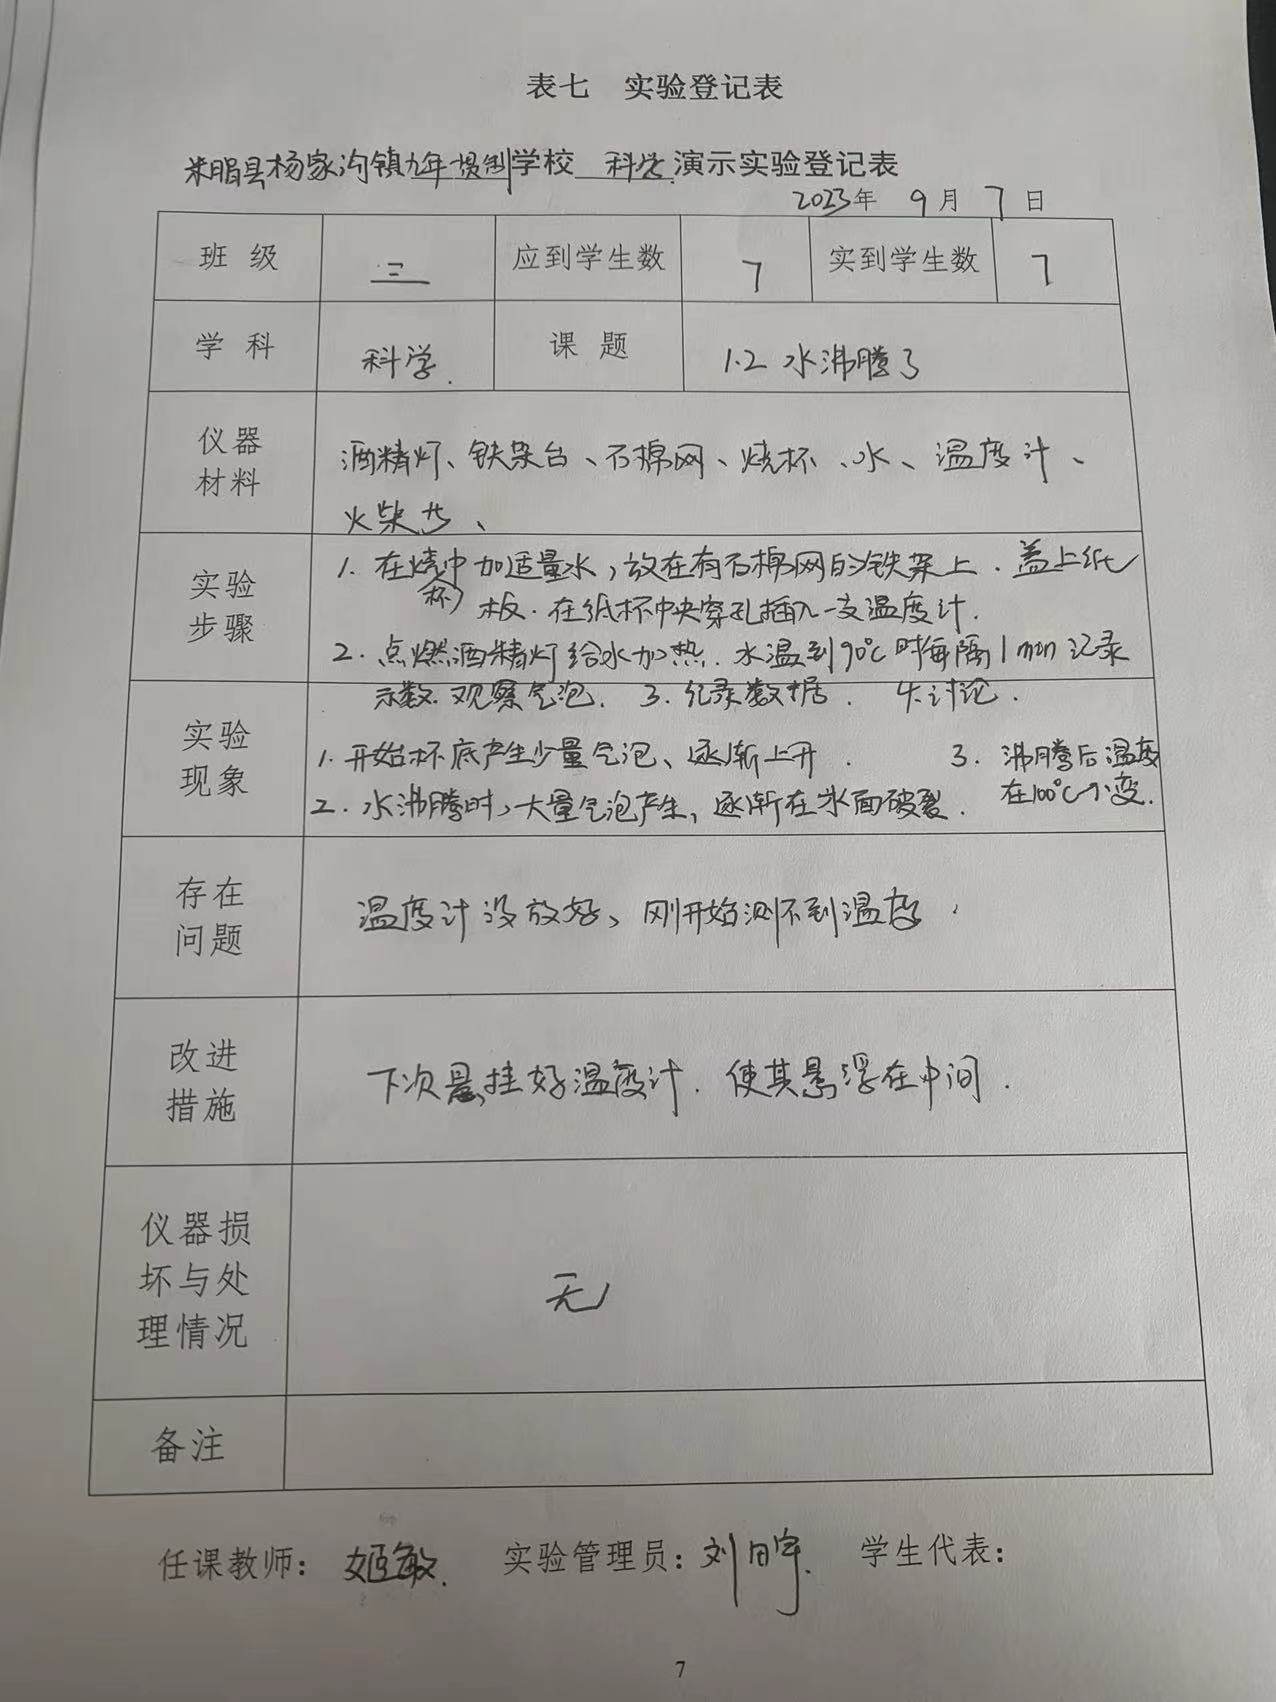 表七 实验登记表
米脂县杨家沟镇九年一贯制学校 科学 演示实验登记表
2023年 9月 7日
班级 三 应到学生数 7 实到学生数 7
学科 科学. 课题 1.2 水沸腾了
仪器材料 酒精灯、铁架台、石棉网、烧杯、水、温度计、
火柴等、
实验步骤 1. 在烧杯中加适量水,放在有石棉网的铁架上.盖上纸
板.在纸杯中央穿孔插入一支温度计.
2. 点燃酒精灯给水加热.水温到90℃时每隔1min记录
示数.观察气泡. 3. 纪录数据. 4. 讨论.
实验现象 1. 开始杯底产生少量气泡、逐渐上升. 3. 沸腾后温度
2. 水沸腾时,大量气泡产生,逐渐在水面破裂. 在100℃不变.
存在问题 温度计没放好,刚开始测不到温度.
改进措施 下次悬挂好温度计.使其悬浮在中间.
仪器损坏与处理情况 无
备注
任课教师: 姬敏. 实验管理员: 刘 学生代表:
7